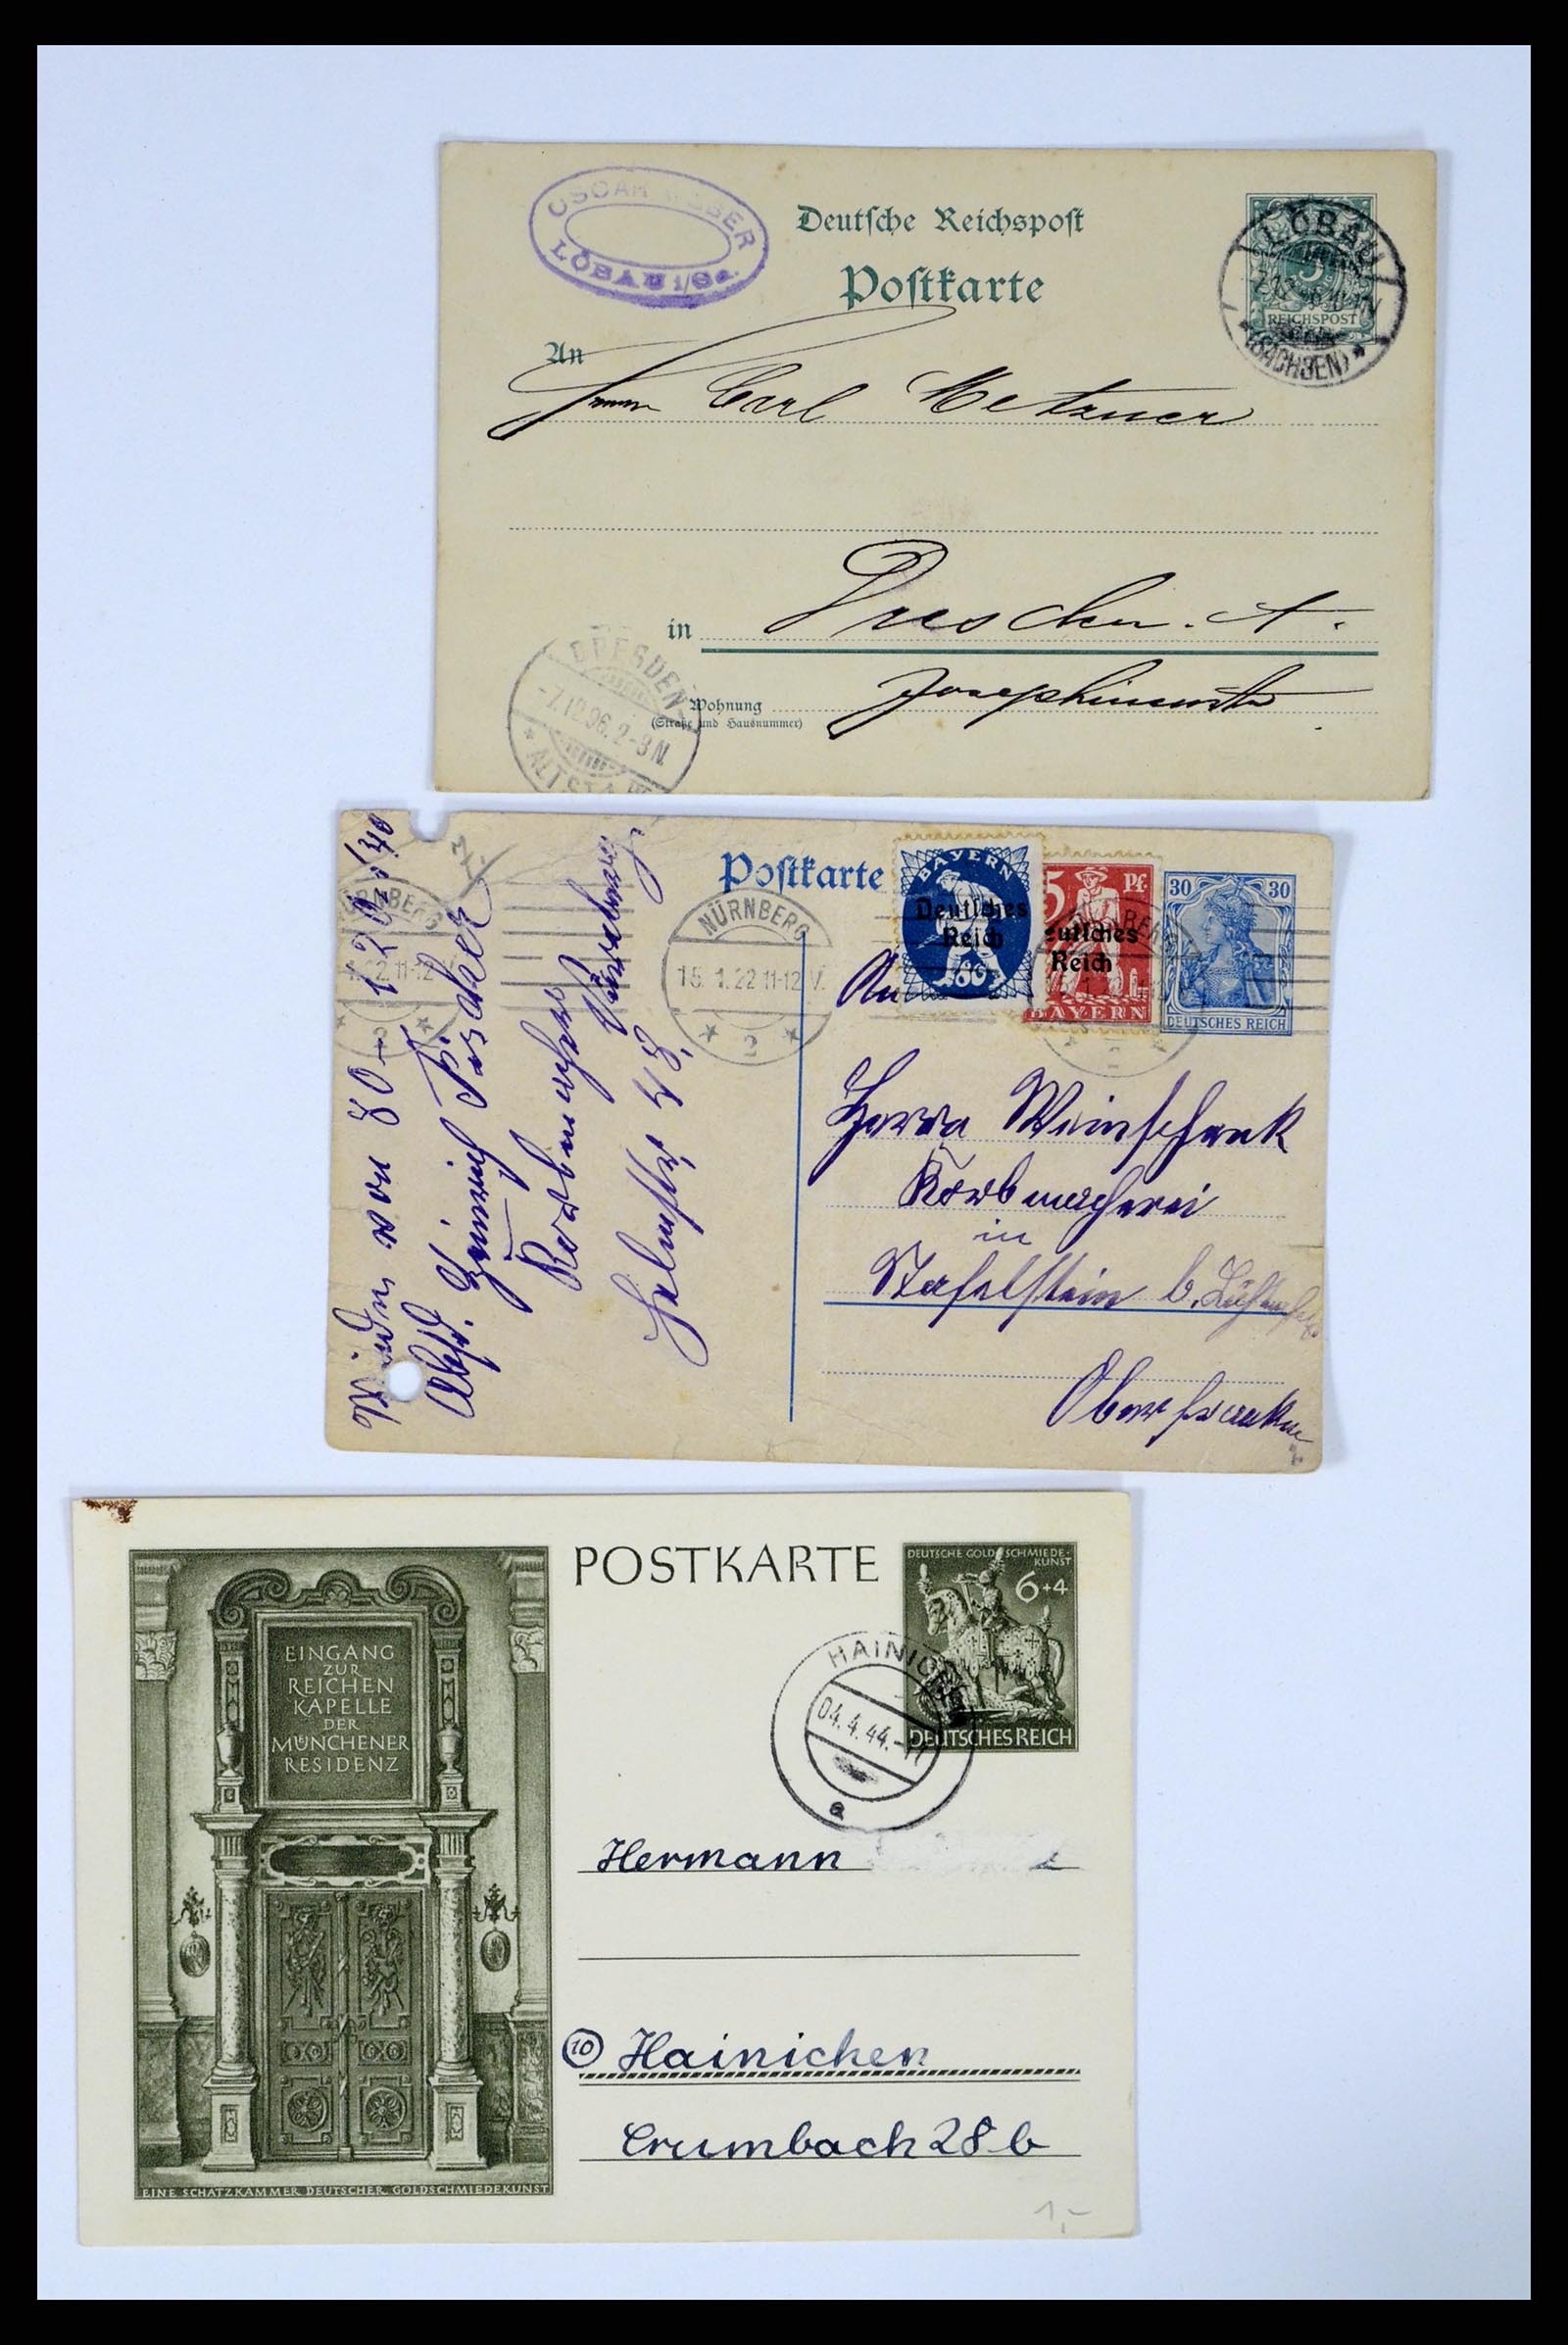 OSCAR WEBER
LÖBAU i/Sa.
Deutsche Reichspost
Postkarte
LÖBAU
(SACHSEN)
REICHSPOST
An
Herrn Carl Metzner
in
Dresden. A.
Wohnung
(Straße und Hausnummer)
DRESDEN-
-7.12.96. 2-3 N.
Postkarte
NÜRNBERG
15. 1.22 11-12 V.
2
BAYERN
Deutsches
Reich
60
5 Pf.
eutsches
Reich
BAYERN
30 30
DEUTSCHES REICH
An
Herrn Weinschenk
Korbmacherei
in
Stafelstein b. Lichtenfels
Oberfranken
Weiden von 80 - 120
Absd. Heinrich Fischer
Korbmacher Nürnberg
POSTKARTE
DEUTSCHE GOLDSCHMIEDE-
KUNST
6+4
DEUTSCHES REICH
HAINICHEN
04.4.44.-11
a
EINGANG
ZUR
REICHEN
KAPELLE
DER
MÜNCHENER
RESIDENZ
Hermann
10 Hainichen
Crumbach 28 b
EINE SCHATZKAMMER DEUTSCHER GOLDSCHMIEDEKUNST
1,-